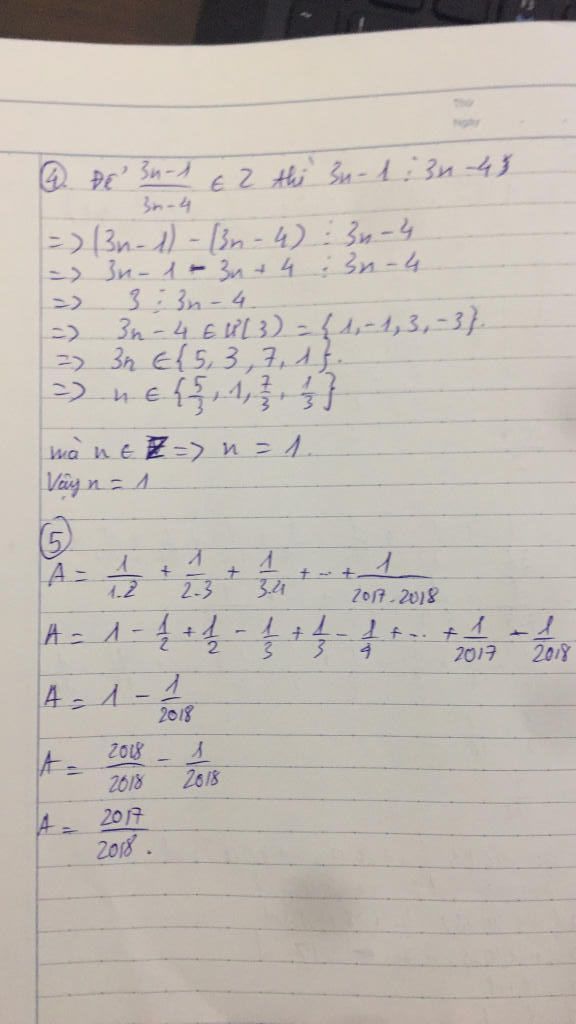 Thứ
Ngày
④. Để \frac{3n-1}{3n-4} ∈ Z thì 3n-1 ⋮ 3n-4
=> (3n-1) - (3n-4) ⋮ 3n-4
=> 3n-1 - 3n + 4 ⋮ 3n-4
=> 3 ⋮ 3n-4
=> 3n-4 ∈ Ư(3) = {1,-1,3,-3}.
=> 3n ∈ {5,3,7,1}.
=> n ∈ {\frac{5}{3}, 1, \frac{7}{3}, \frac{1}{3}}
mà n ∈ Z => n = 1.
Vậy n = 1
⑤
A = \frac{1}{1.2} + \frac{1}{2.3} + \frac{1}{3.4} + ... + \frac{1}{2017.2018}
A = 1 - \frac{1}{2} + \frac{1}{2} - \frac{1}{3} + \frac{1}{3} - \frac{1}{4} + ... + \frac{1}{2017} - \frac{1}{2018}
A = 1 - \frac{1}{2018}
A = \frac{2018}{2018} - \frac{1}{2018}
A = \frac{2017}{2018}.